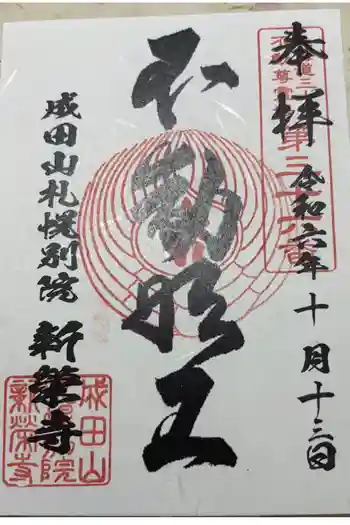 奉拝
令和六年十月十三日
不動明王
成田山札幌別院
新榮寺
成田山
新榮寺